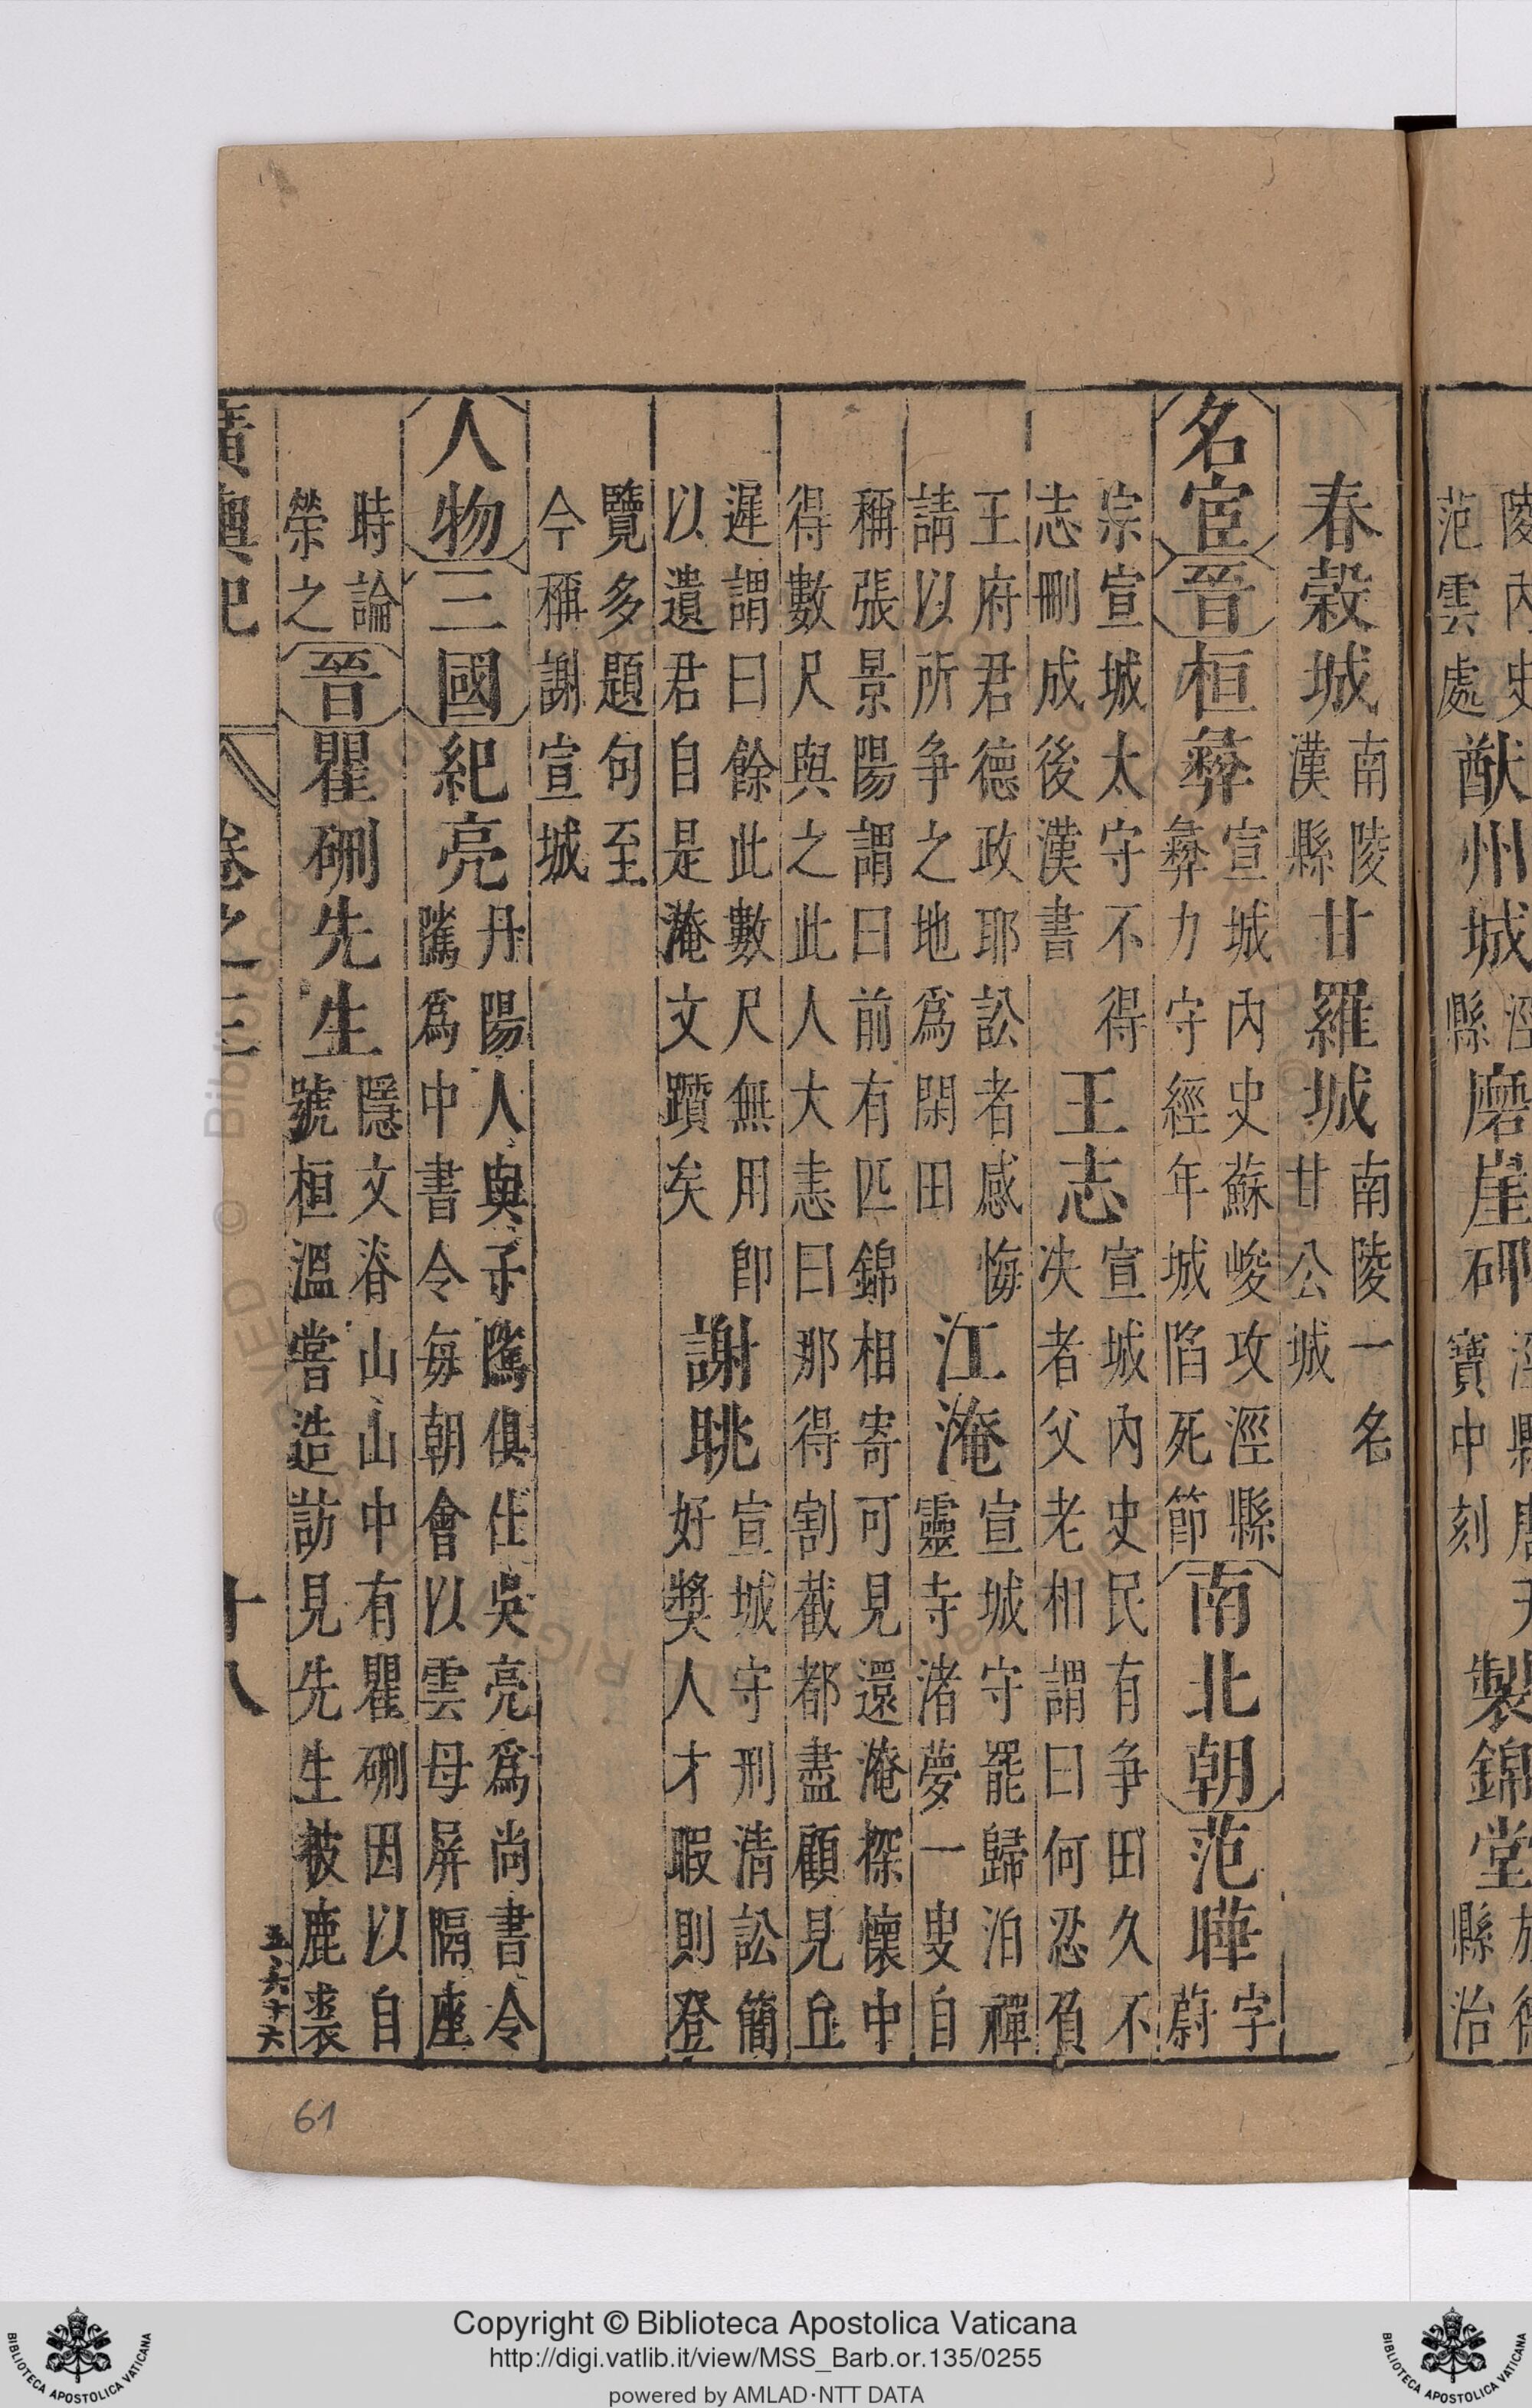 陵內史范雲處猷州城涇縣磨崖碑涇縣唐天寶中刻製錦堂旌德縣治
春穀城南陵漢縣甘羅城南陵一名甘公城
名宦晉桓彝宣城內史蘇峻攻涇縣彝力守經年城陷死節南北朝范曄字蔚
宗宣城太守不得志刪成後漢書王志宣城內史民有争田久不决者父老相謂曰何忍負
王府君德政耶訟者感悔請以所争之地爲閑田江淹宣城守罷歸泊禪靈寺渚夢一叟自
稱張景陽謂曰前有匹錦相寄可見還淹探懷中得數尺與之此人大恚曰那得割截都盡顧見丘
遲謂曰餘此數尺無用卽以遺君自是淹文躓矣謝朓宣城守刑清訟簡好獎人才暇則登
覽多題句至今稱謝宣城
人物三國紀亮丹陽人與子隲俱仕吳亮爲尚書令隲爲中書令每朝會以雲母屏隔座
時論榮之晉瞿硎先生隱文脊山山中有瞿硎因以自號桓溫嘗造訪見先生被鹿裘
廣輿記 卷之三 十八 五六十六
61
Copyright © Biblioteca Apostolica Vaticana
http://digi.vatlib.it/view/MSS_Barb.or.135/0255
powered by AMLAD·NTT DATA
BIBLIOTECA APOSTOLICA VATICANA
BIBLIOTECA APOSTOLICA VATICANA